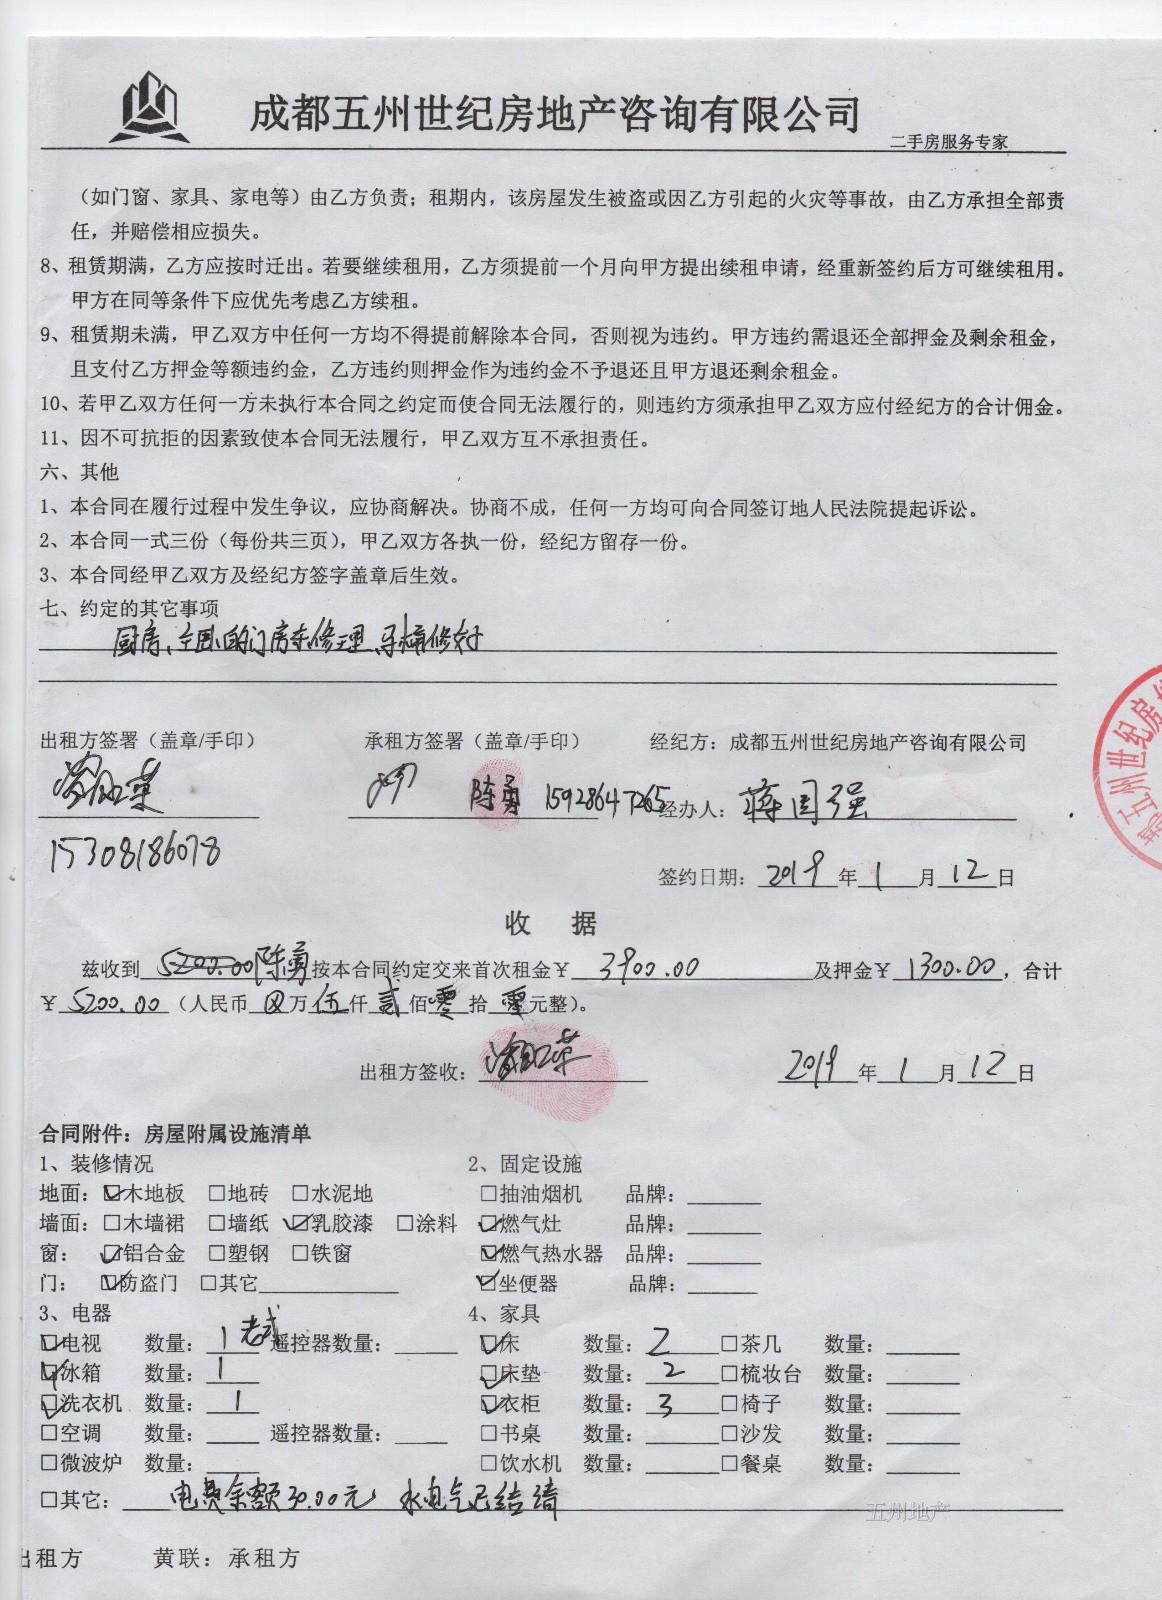 成都五州世纪房地产咨询有限公司
二手房服务专家
（如门窗、家具、家电等）由乙方负责；租期内，该房屋发生被盗或因乙方引起的火灾等事故，由乙方承担全部责
任，并赔偿相应损失。
8、租赁期满，乙方应按时迁出。若要继续租用，乙方须提前一个月向甲方提出续租申请，经重新签约后方可继续租用。
甲方在同等条件下应优先考虑乙方续租。
9、租赁期未满，甲乙双方中任何一方均不得提前解除本合同，否则视为违约。甲方违约需退还全部押金及剩余租金，
且支付乙方押金等额违约金，乙方违约则押金作为违约金不予退还且甲方退还剩余租金。
10、若甲乙双方任何一方未执行本合同之约定而使合同无法履行的，则违约方须承担甲乙双方应付经纪方的合计佣金。
11、因不可抗拒的因素致使本合同无法履行，甲乙双方互不承担责任。
六、其他
1、本合同在履行过程中发生争议，应协商解决。协商不成，任何一方均可向合同签订地人民法院提起诉讼。
2、本合同一式三份（每份共三页），甲乙双方各执一份，经纪方留存一份。
3、本合同经甲乙双方及经纪方签字盖章后生效。
七、约定的其它事项
厨房、 的门房东修理 修好
出租方签署（盖章/手印） 承租方签署（盖章/手印） 经纪方：成都五州世纪房地产咨询有限公司
陈勇 15928647265 经办人：蒋国强
15308186078
签约日期：2019年1月12日
州世纪房
收 据
兹收到5200.00陈勇按本合同约定交来首次租金￥3900.00及押金￥1300.00，合计
￥5200.00（人民币 万伍仟贰佰零拾零元整）。
出租方签收： 2019年1月12日
合同附件：房屋附属设施清单
1、装修情况 2、固定设施
地面：☑木地板 □地砖 □水泥地 □抽油烟机 品牌：
墙面：□木墙裙 □墙纸 ☑乳胶漆 □涂料 ☑燃气灶 品牌：
窗：☑铝合金 □塑钢 □铁窗 ☑燃气热水器 品牌：
门：☑防盗门 □其它 ☑坐便器 品牌：
3、电器 4、家具
☑电视 数量：1老式 遥控器数量： ☑床 数量：2 □茶几 数量：
☑冰箱 数量：1 ☑床垫 数量：2 □梳妆台 数量：
☑洗衣机 数量：1 ☑衣柜 数量：3 □椅子 数量：
□空调 数量： 遥控器数量： □书桌 数量： □沙发 数量：
□微波炉 数量： □饮水机 数量： □餐桌 数量：
□其它：电费余额30.00元 水电气已结清
五州地产
出租方 黄联：承租方